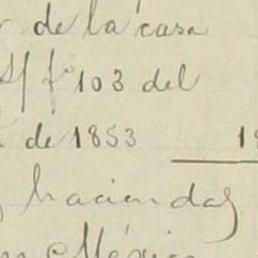 de la casa
S/ fº 103 del
de 1853
haciendas
México